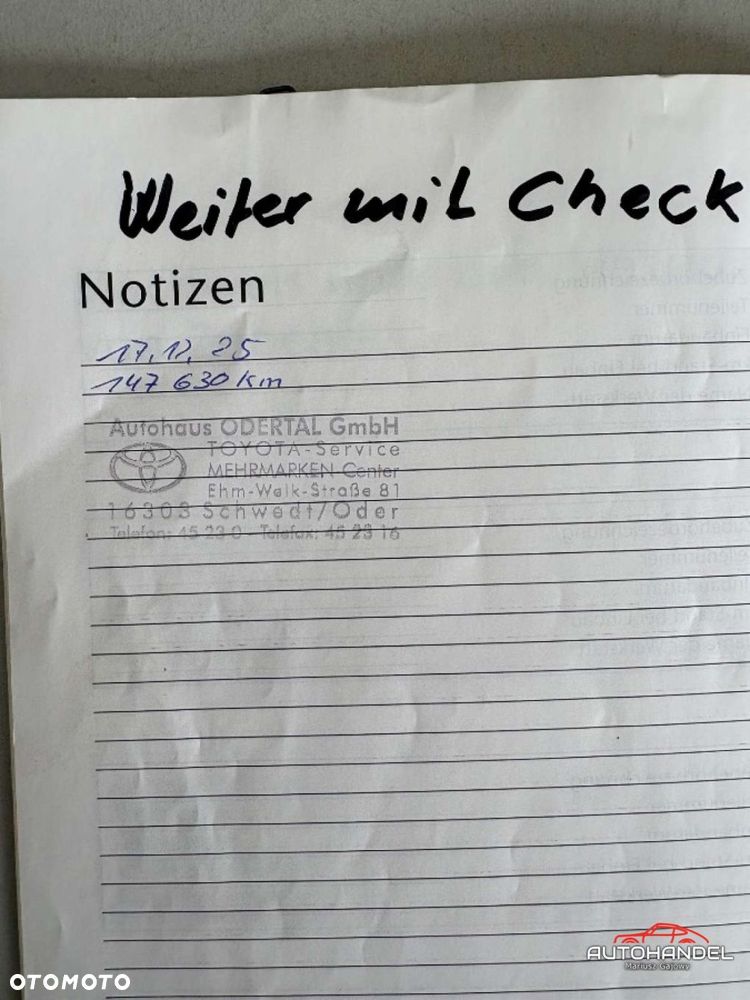 Weiter mit Check
Notizen
17.12.25
147 630 km
Autohaus ODERTAL GmbH
TOYOTA-Service
MEHRMARKEN Center
Ehm-Welk-Straße 81
16303 Schwedt/Oder
Telefon: 45 23 0 - Telefax: 45 23 16
AUTOHANDEL
Mariusz Gajowy
OTOMOTO